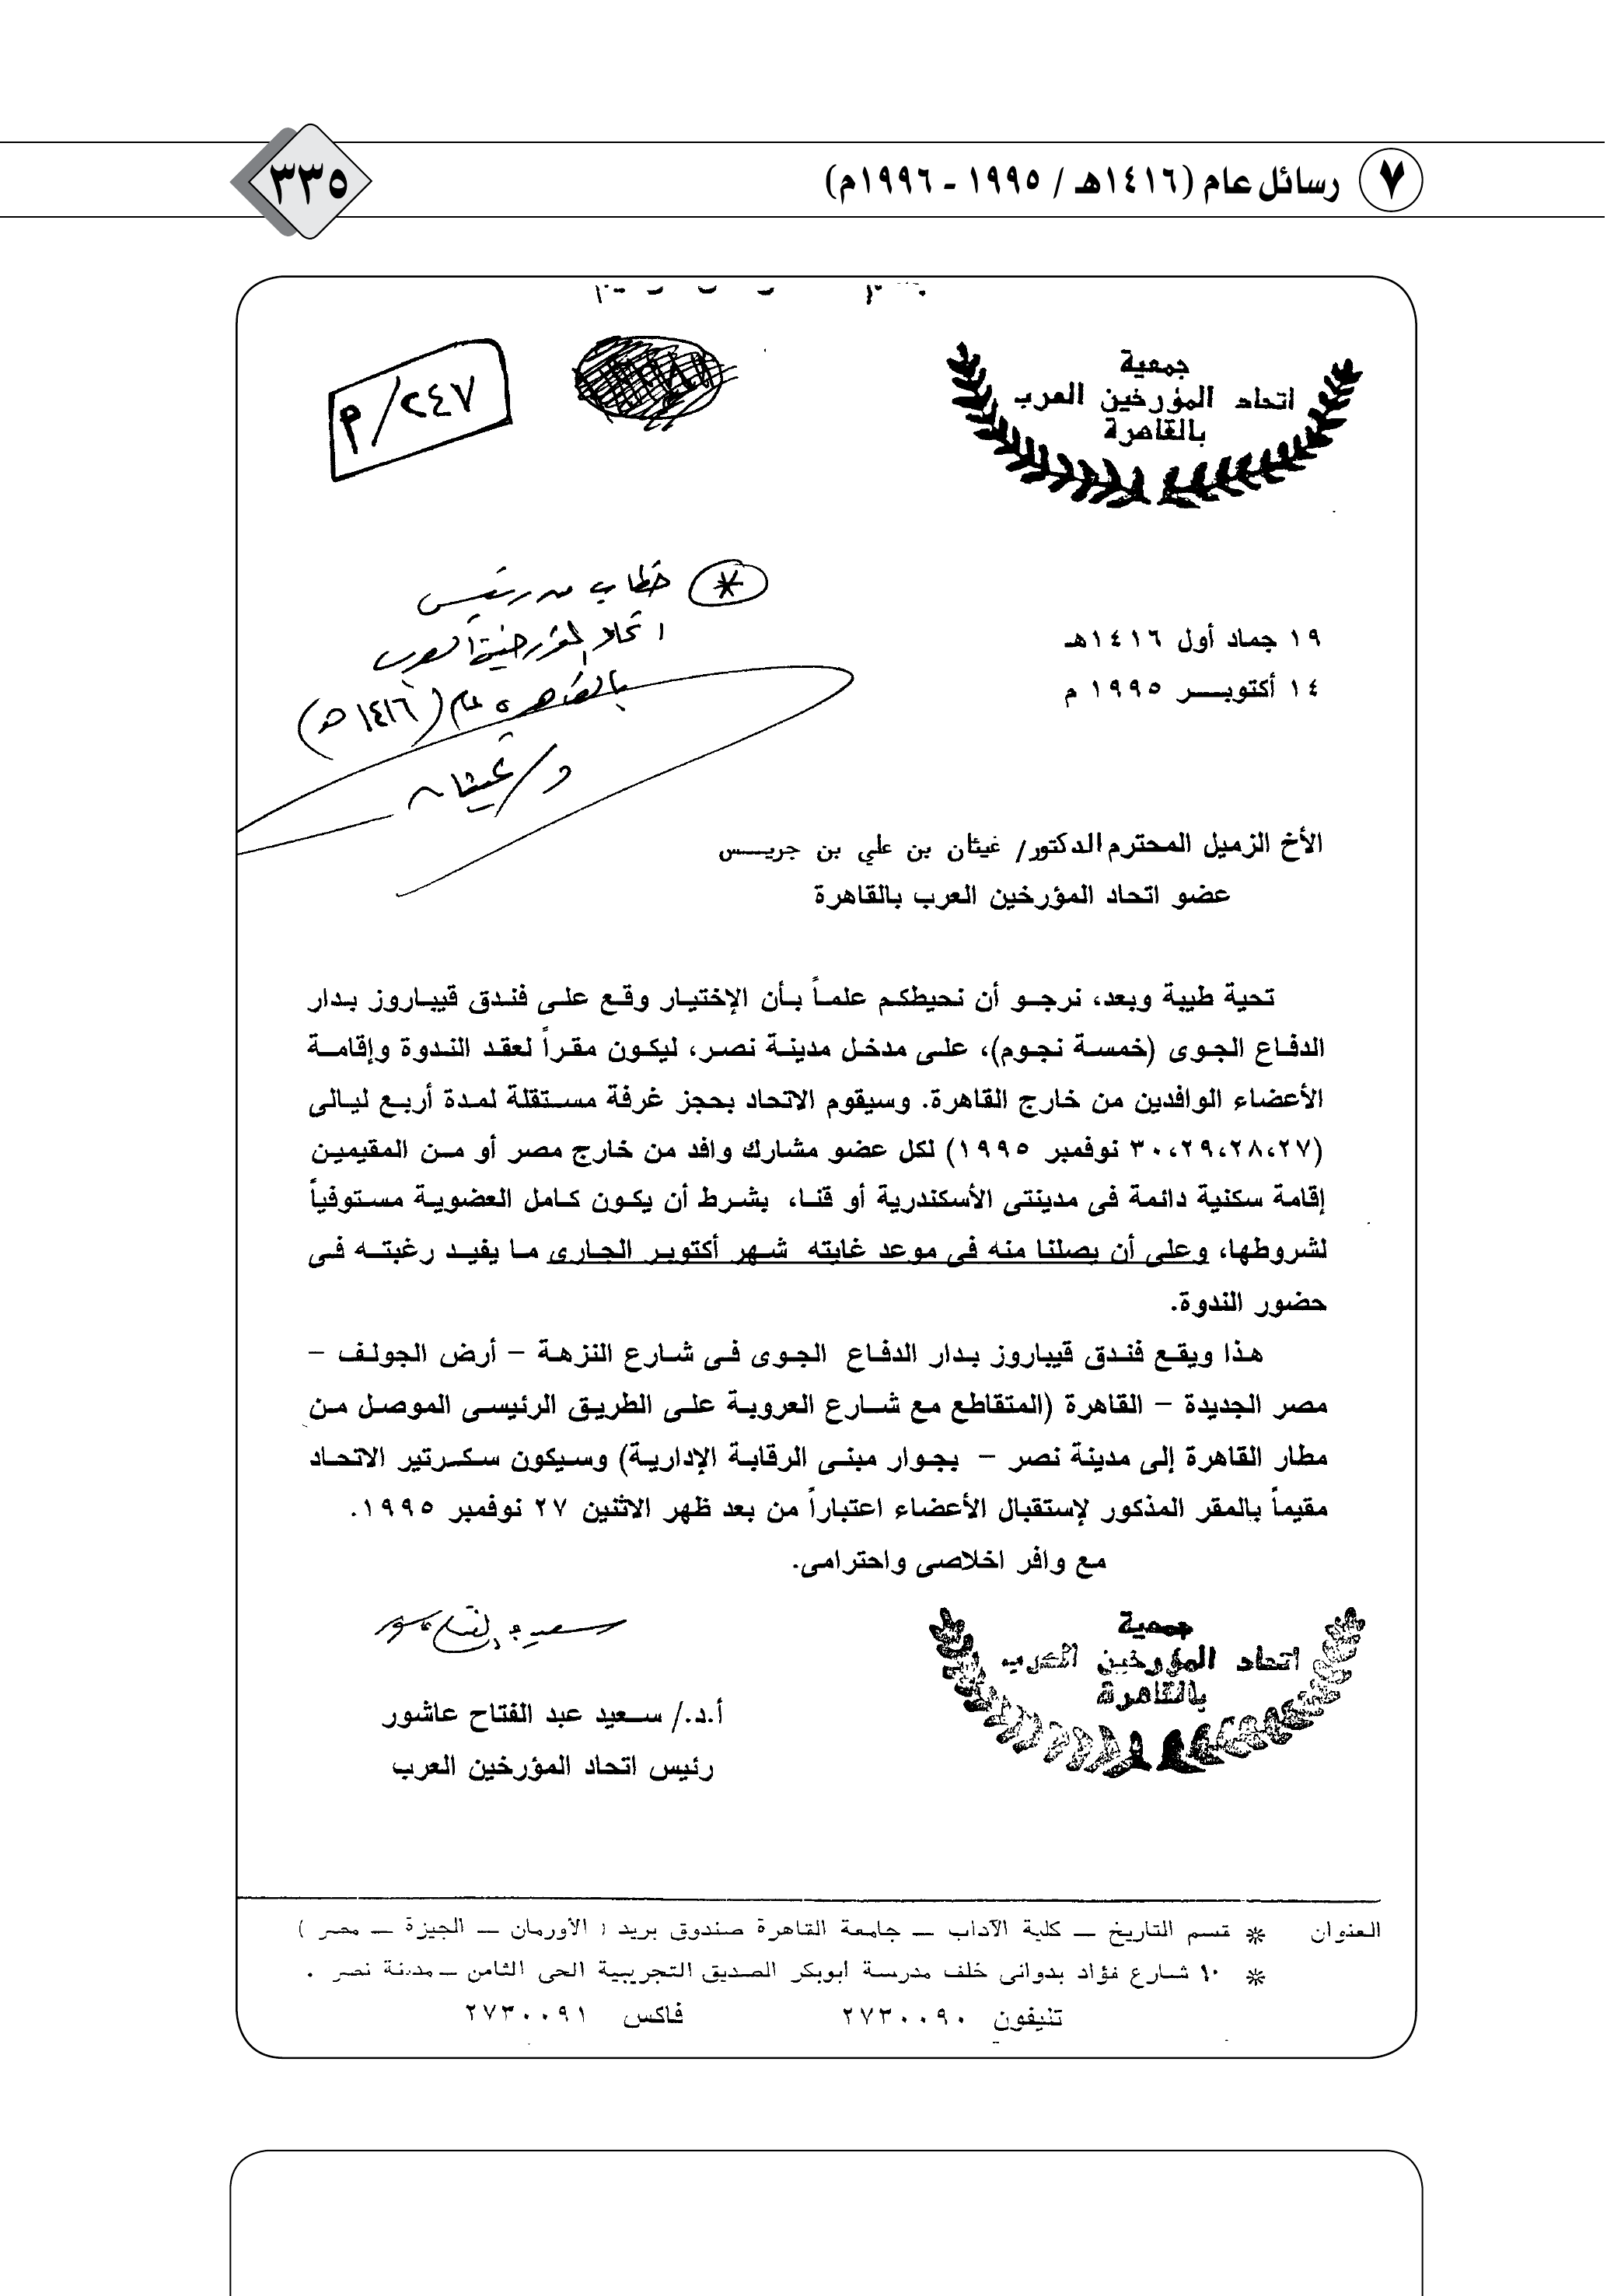 ٧ رسائل عام (١٤١٦هـ / ١٩٩٥ - ١٩٩٦م) ٣٣٥
جمعية
اتحاد المؤرخين العرب
بالقاهرة
٢٤٧/م
خطاب من رئيس
اتحاد المؤرخين العرب
بالقاهرة عام (١٤١٦هـ)
د/ غيثان
١٩ جماد أول ١٤١٦هـ
١٤ أكتوبـــر ١٩٩٥ م
الأخ الزميل المحترم الدكتور/ غيثان بن علي بن جريــس
عضو اتحاد المؤرخين العرب بالقاهرة
تحية طيبة وبعد، نرجــو أن نحيطكـم علمــاً بـأن الإختيـار وقـع علـى فنـدق ڤيبـاروز بـدار
الدفـاع الجـوى (خمسـة نجـوم)، علـى مدخـل مدينـة نصـر، ليكـون مقـراً لعقـد النـدوة وإقامــة
الأعضـاء الوافدين من خارج القاهرة. وسيقوم الاتحاد بحجز غرفة مسـتقلة لمـدة أربـع ليـالى
(٣٠،٢٩،٢٨،٢٧ نوفمبر ١٩٩٥) لكل عضو مشارك وافد من خارج مصر أو مــن المقيميـن
إقامة سكنية دائمة فى مدينتى الأسكندرية أو قنـا، بشـرط أن يكـون كـامل العضويـة مسـتوفياً
لشروطها، وعلى أن يصلنا منه فى موعد غايته شـهر أكتوبـر الجـارى مـا يفيـد رغبتـه فـى
حضور الندوة.
هـذا ويقـع فنـدق ڤيباروز بـدار الدفـاع الجـوى فـى شـارع النزهـة – أرض الجولـف –
مصر الجديدة – القاهرة (المتقاطع مـع شــارع العروبـة علـى الطريـق الرئيسـى الموصـل مـن
مطار القاهرة إلى مدينة نصر – بجـوار مبنـى الرقابـة الإداريـة) وسـيكون سـكـرتير الاتحـاد
مقيماً بالمقر المذكور لإستقبال الأعضاء اعتباراً من بعد ظهر الاثنين ٢٧ نوفمبر ١٩٩٥.
مع وافر اخلاصى واحترامى.
سعيد عبد الفتاح عاشور
جمعية
اتحاد المؤرخين العرب
بالقاهرة
أ.د./ ســعيد عبد الفتاح عاشور
رئيس اتحاد المؤرخين العرب
العنوان * قسم التاريخ ــ كلية الآداب ــ جامعة القاهرة صندوق بريد ( الأورمان ــ الجيزة ــ مصر )
* ١٠ شارع فؤاد بدوانى خلف مدرسة ابوبكر الصديق التجريبية الحى الثامن ــ مدينة نصر .
تليفون ٢٧٣٠٠٩٠ فاكس ٢٧٣٠٠٩١